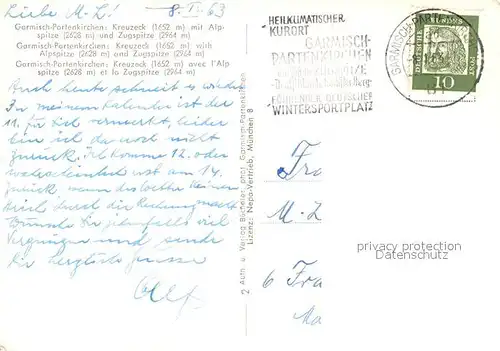 Liebe M.L! 8. II. 63
Garmisch-Partenkirchen: Kreuzeck (1652 m) mit Alp-
spitze (2628 m) und Zugspitze (2964 m)
Garmisch-Partenkirchen: Kreuzeck (1652 m) with
Alpspitze (2628 m) and Zugspitze (2964 m)
Garmisch-Partenkirchen: Kreuzeck (1652 m) avec l'Alp
spitze (2628 m) et la Zugspitze (2964 m)
Auch heute schneit es wieder
In meinem Kalender ist der
11. für Dich vermerkt, leider
bin ich da noch nicht
zurück. Ich komme 12. oder
wahrscheinlich erst am 14.
zurück wenn das
durch die Rechnung
Wünsche Dir jedenfalls viel
Vergnügen und sende
Dir herzlichste Grüsse
2 Aufn. u. Verlag: B. phot. Garmisch-Partenkirchen
Lizenz: Nepo-Vertrieb, München 8
HEILKLIMATISCHER
KURORT
GARMISCH-
PARTENKIRCHEN
WINTERSPORTPLATZ
GARMISCH-PARTENK
DEUTSCHE
BUNDESPOST
10
Fra
M. L
6 Fra
Ma
privacy protection
Datenschutz